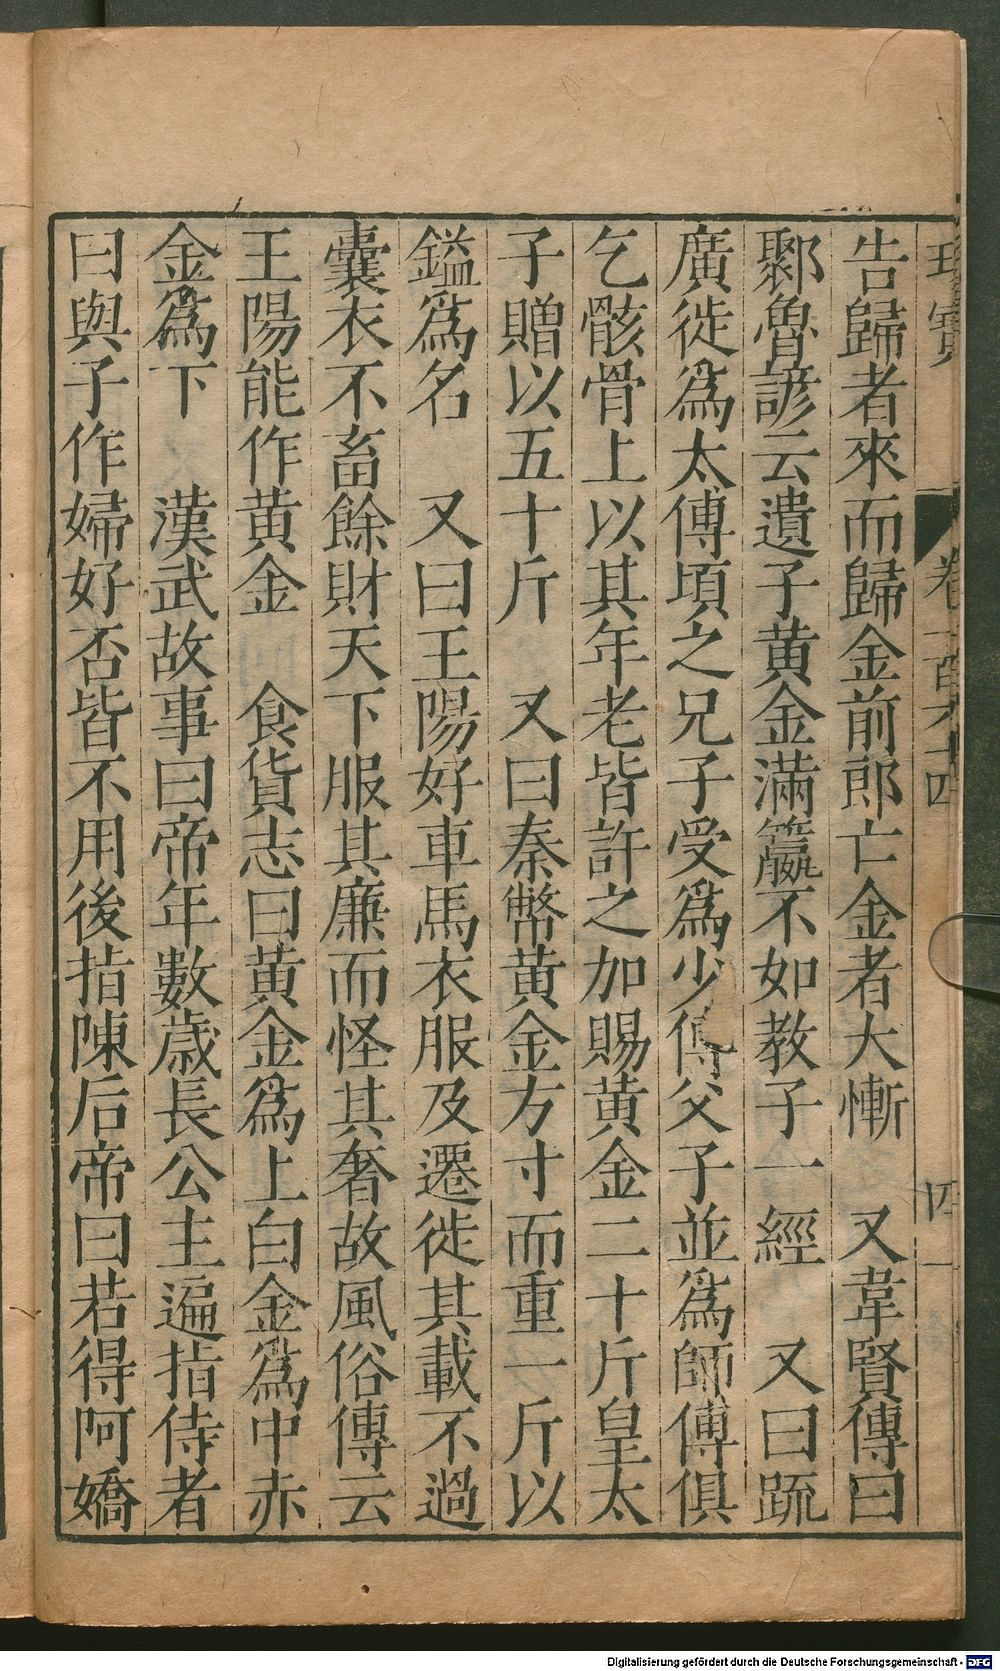 寶
卷一百六十四
四
告歸者來而歸金前郎亡金者大慚　又韋賢傳曰
鄹魯諺云遺子黄金滿籯不如教子一經　又曰疏
廣徙爲太傅頃之兄子受爲少傅父子並爲師傅俱
乞骸骨上以其年老皆許之加賜黄金二十斤皇太
子贈以五十斤　又曰秦幣黄金方寸而重一斤以
鎰爲名　又曰王陽好車馬衣服及遷徙其載不過
囊衣不畜餘財天下服其廉而怪其奢故風俗傳云
王陽能作黄金　食貨志曰黄金爲上白金爲中赤
金爲下　漢武故事曰帝年數歲長公主遍指侍者
曰與子作婦好否皆不用後指陳后帝曰若得阿嬌
Digitalisierung gefördert durch die Deutsche Forschungsgemeinschaft - DFG